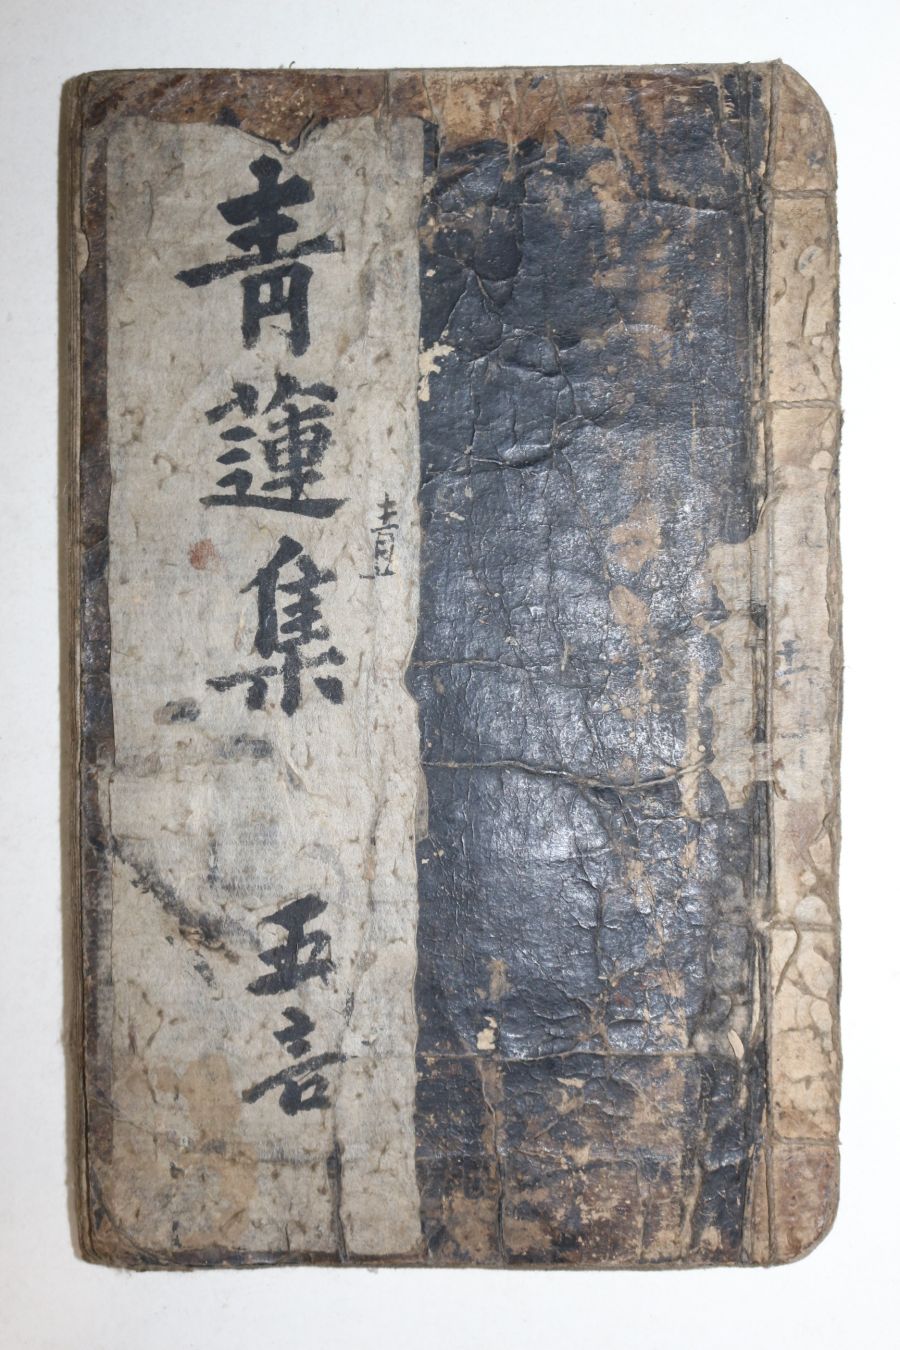 青蓮集 五言
青